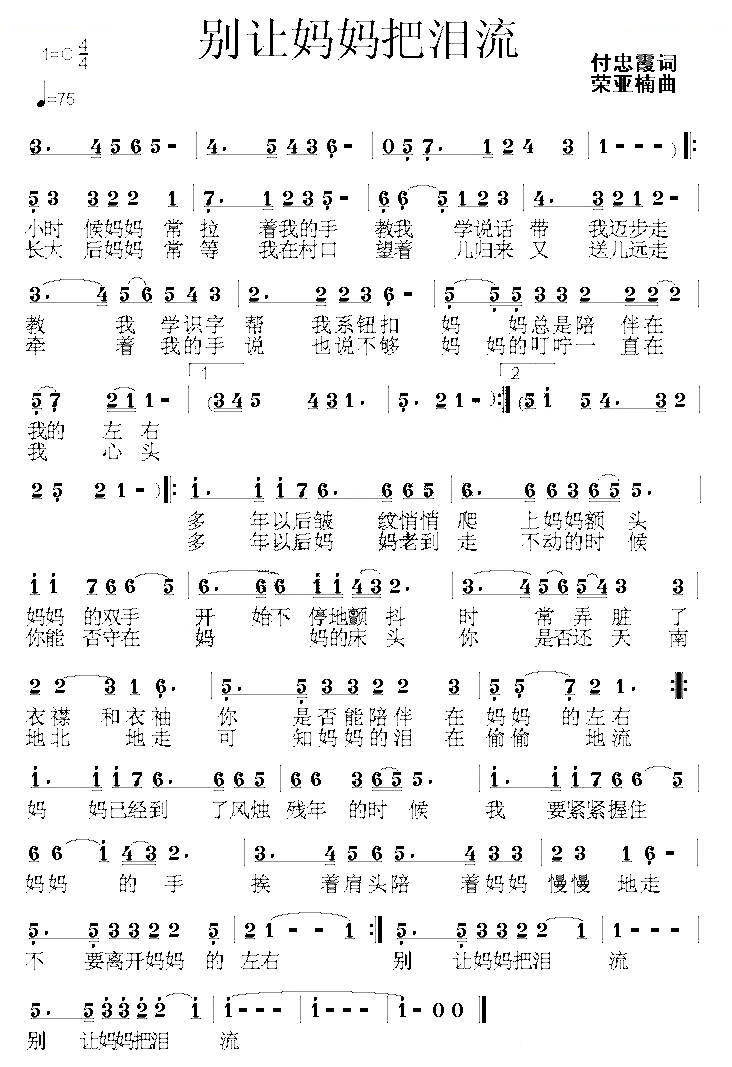 别让妈妈把泪流
1=C 4/4
付忠霞词
荣亚楠曲
♩=75
3. 4565- | 4. 5436- | 057. 124 3 | 1--- ) ‖:
53 322 1 | 7. 1235- | 66 5123 | 4. 3212- |
小时 候妈妈 常 拉 着我的手 教我 学说话 带 我迈步走
长大 后妈妈 常 等 我在村口 望着 儿归来 又 送儿远走
3. 456543 | 2. 2236- | 5 55332 222 |
教 我 学识字 帮 我系钮扣 妈 妈总是陪 伴在
牵 着 我的手 说 也说不够 妈 妈的叮咛一 直在
1 2
57. 211- | (345 431. | 5. 21- ) :‖ (5i 54. 32 |
我的 左右
我 心头
25 21- ) ‖: i. ii76. 665 | 6. 663655. |
多 年以后皱 纹悄悄 爬 上妈妈额 头
多 年以后妈 妈老到 走 不动的时 候
ii 766 5 | 6. 66 ii432. | 3. 456543 3 |
妈妈 的双手 开 始不 停地颤 抖 时 常弄脏 了
你能 否守在 妈 妈的床头 你 是否还 天南
22 316. | 5. 53322 3 | 55 721. :‖
衣襟 和衣袖 你 是否能陪伴 在 妈妈 的左右
地北 地走 可 知妈妈的泪 在 偷偷 地流
i. ii76. 665 | 66 3635. | i. ii76 665 |
妈 妈已经到 了风烛 残年 的时 候 我 要紧紧握住
66 i432. | 3. 4565. 433 | 23 16- |
妈妈 的 手 挨 着肩头陪 着妈妈 慢慢 地走
5. 53322 5 | 21- - 1. :‖ 5. 53322 1 |
不 要离开妈妈 的 左右 别 让妈妈把泪 流
5. 53322 i | i--- | i-00 ‖
别 让妈妈把泪 流